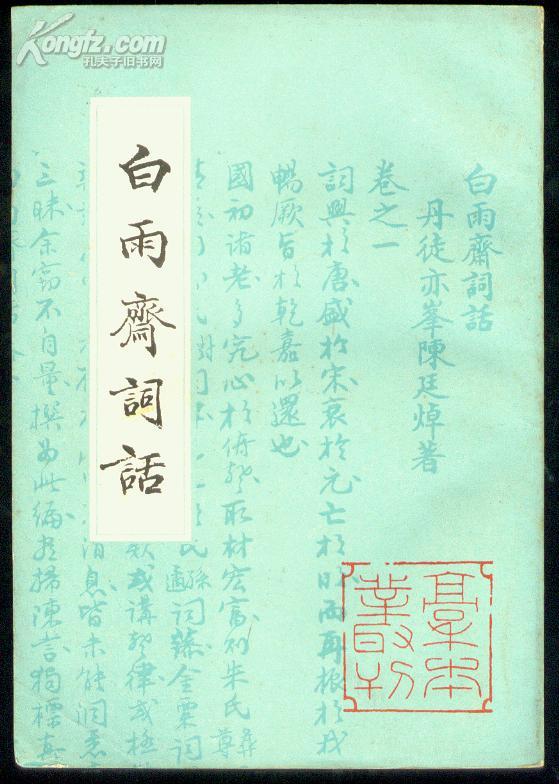 Kongfz.com
孔夫子旧书网
白雨齋詞話
白雨齋詞話
丹徒亦峯陳廷焯著
卷之一
詞興於唐盛於宋衰於元亡於明而再振於我
暢厥旨於乾嘉以還也
國初諸老多究心於倚聲取材宏富則朱氏彝尊
氏孫遹詞藻金粟詞
或講聲律或極
消息皆未能洞悉
三昧余竊不自量撰為此編盡掃陳言獨標真